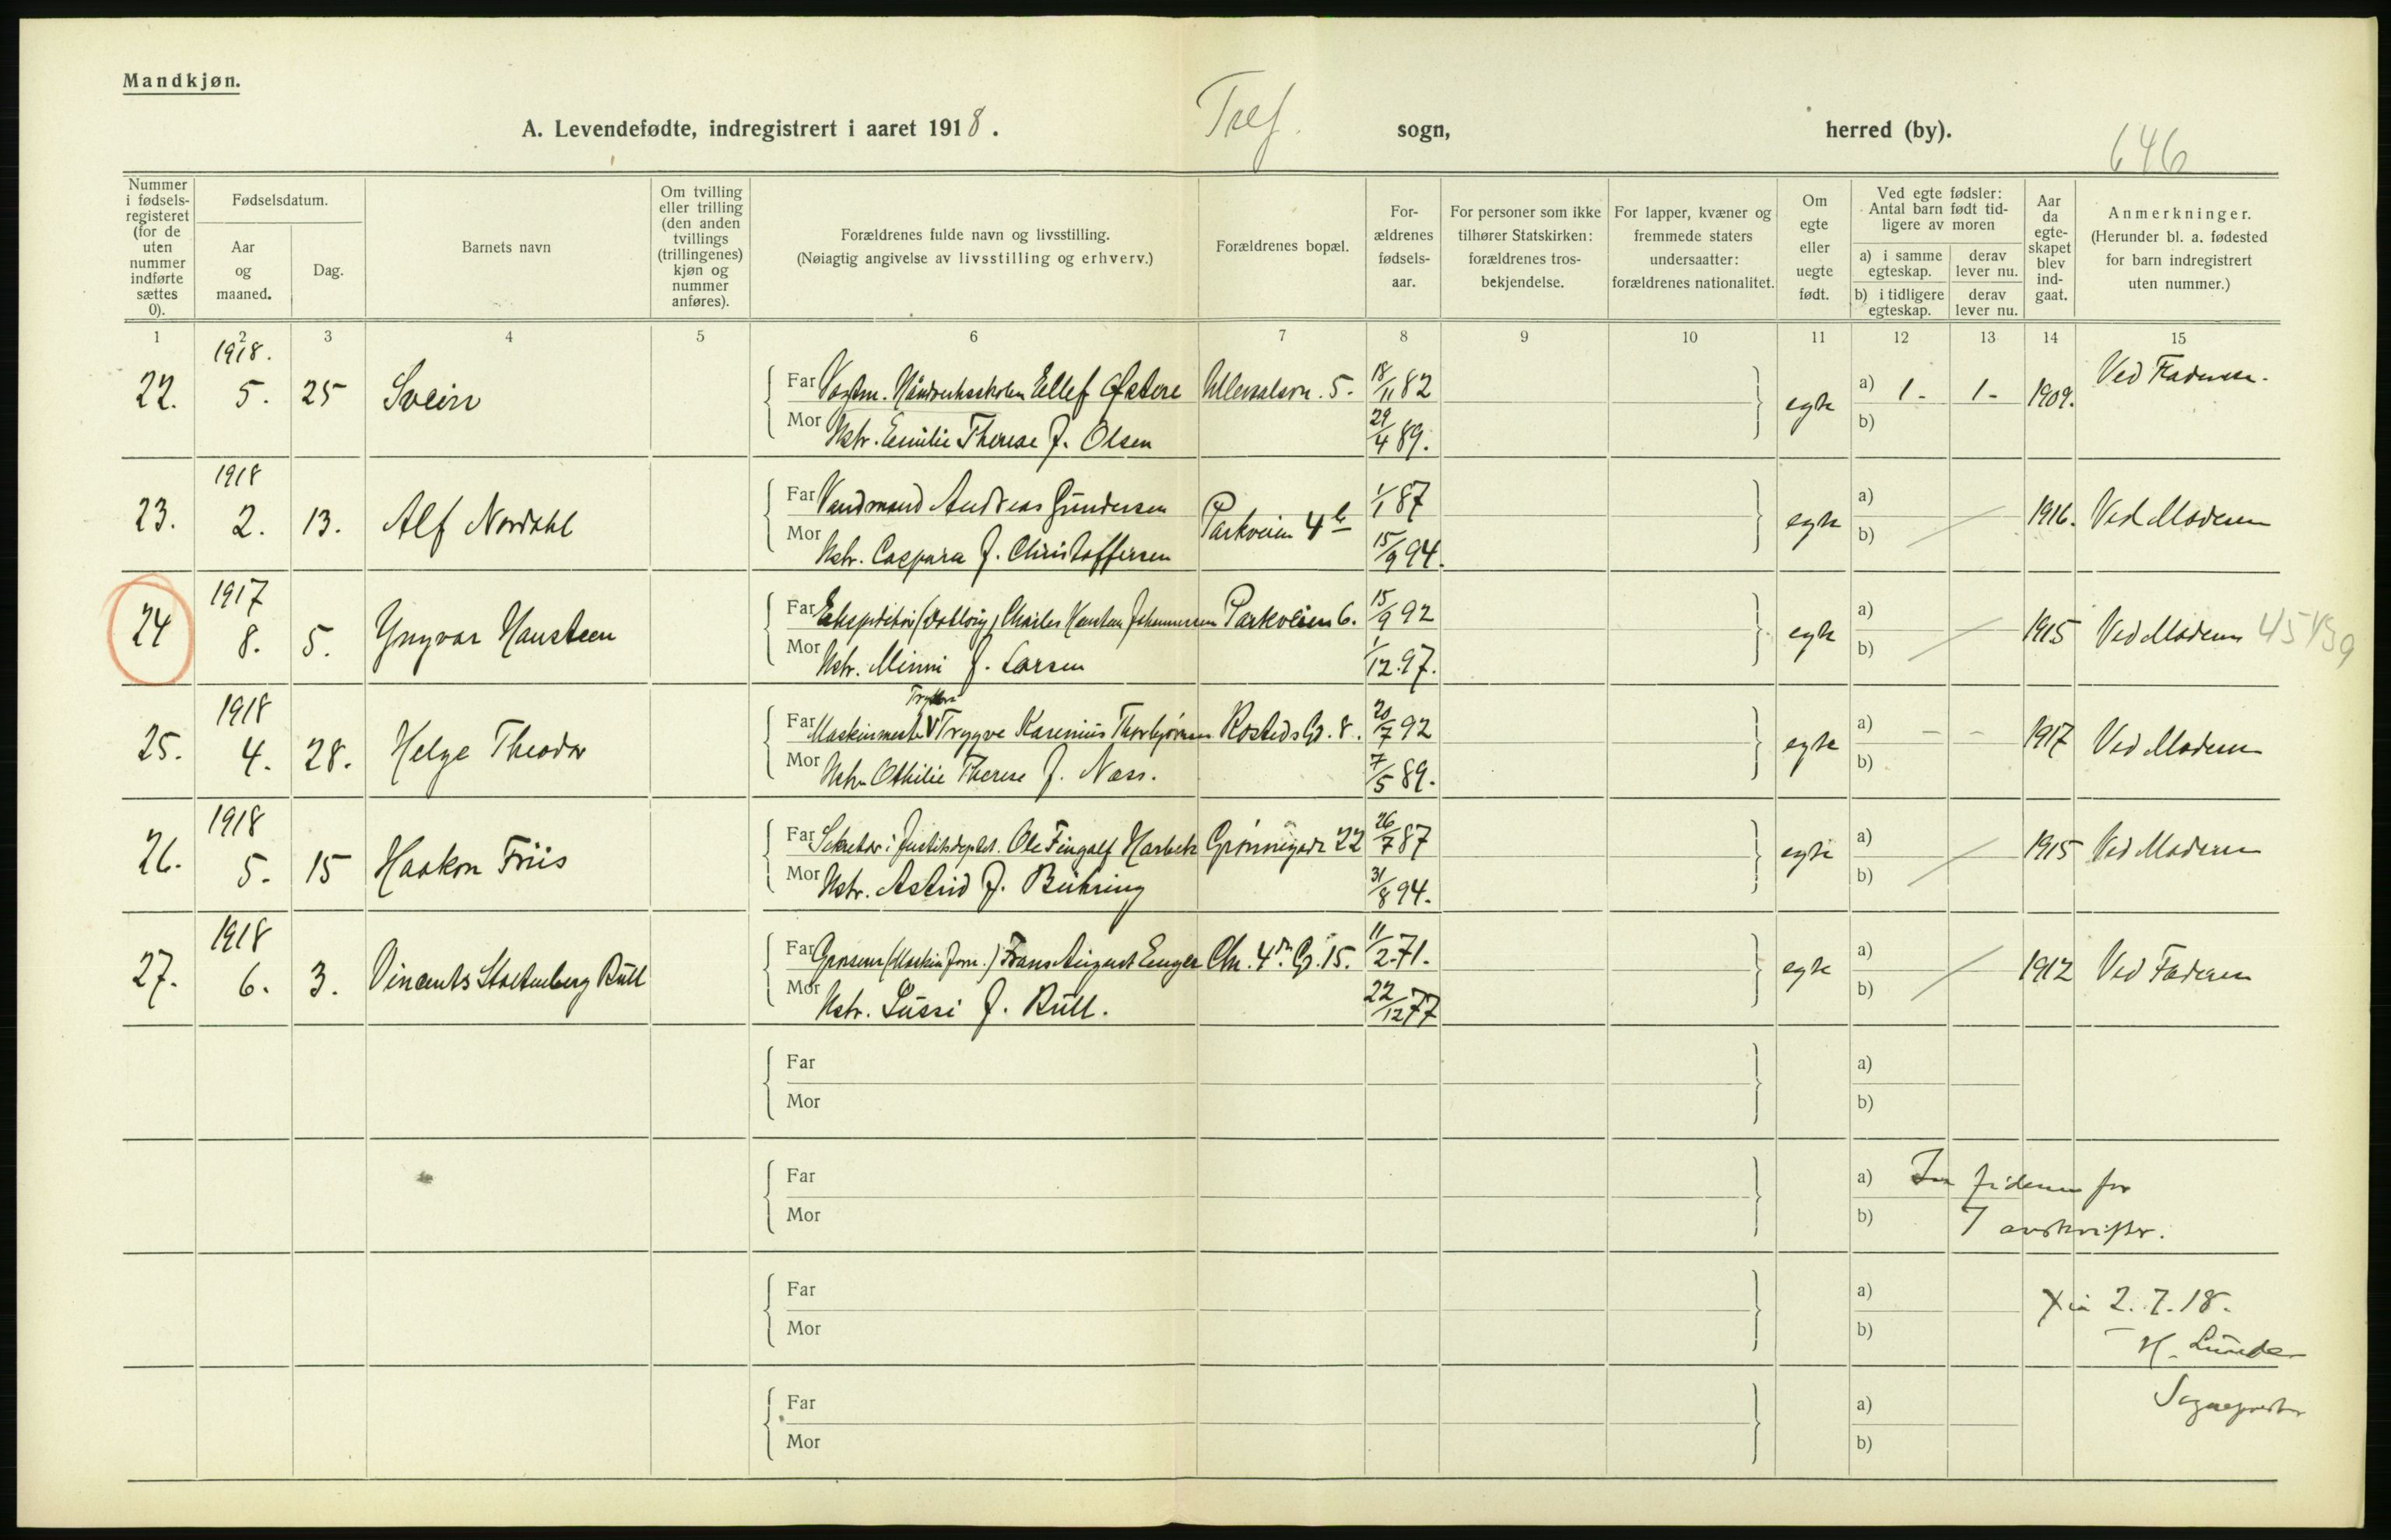 Mandkjøn.
A. Levendefødte, indregistrert i aaret 1918. Tref. sogn, herred (by).
646
Nummer i fødsels-registeret (for de uten nummer indførte sættes 0).
Fødselsdatum.
Aar og maaned.
Dag.
Barnets navn
Om tvilling eller trilling (den anden tvillings (trillingenes) kjøn og nummer anføres).
Forældrenes fulde navn og livsstilling.
(Nøiagtig angivelse av livsstilling og erhverv.)
Forældrenes bopæl.
For-ældrenes fødsels-aar.
For personer som ikke tilhører Statskirken: forældrenes tros-bekjendelse.
For lapper, kvæner og fremmede staters undersaatter: forældrenes nationalitet.
Om egte eller uegte født.
Ved egte fødsler: Antal barn født tid-ligere av moren
a) i samme egteskap.
derav lever nu.
b) i tidligere egteskap.
derav lever nu.
Aar da egte-skapet blev ind-gaat.
Anmerkninger.
(Herunder bl. a. fødested for barn indregistrert uten nummer.)
1 2 3 4 5 6 7 8 9 10 11 12 13 14 15
1918.
22. 5. 25 Svein
Far Vagtm. Håndverksskolen Ellef Østere Ullevalsvn. 5. 18/11 82
Mor Hstr. Emilie Therese f. Olsen 29/4 89.
egte a) 1. 1. b) 1909. Ved Faderen.
1918
23. 2. 13. Alf Nordahl
Far Vandmand Andreas Gundersen Parkveien 4 b 1/1 87
Mor Hstr. Caspara f. Christoffersen 15/9 94.
egte a) b) 1916. Ved Moderen
1917
24 8. 5. Yngvar Hansteen
Far Ekspeditør Charles Hansteen Johannessen Parkveien 6. 15/9 92
Mor Hstr. Minni f. Larsen 1/12 97.
egte a) b) 1915 Ved Moderen
1918
25. 4. 28. Helge Theodor
Far Maskinmester Trygve Karenius Thorbjørnsen Rosteds Gd. 8. 20/7 92
Mor Hstr. Othilie Therese f. Næss. 7/5 89.
egte a) - - b) 1917 Ved Moderen
1918
26. 5. 15 Haakon Friis
Far Sekretær i Justitsdeptet. Ole Fingalf Harbek Grønnegade 22 26/7 87
Mor Hstr. Astrid f. Bühring 31/8 94.
egte a) b) 1915 Ved Moderen
1918
27. 6. 3. Vincents Stoltenberg Bull
Far Grosserer (Maskin forr.) Frans August Enger Chr. 4de Gd. 15. 11/2 71.
Mor Hstr. Sussi f. Bull. 22/12 77
egte a) b) 1912 Ved Faderen
Far a)
Mor b)
Far a)
Mor b)
7 avskrifter.
Far a)
Mor b)
2.7.18.
H. Lunde
Sogneprest
Far a)
Mor b)